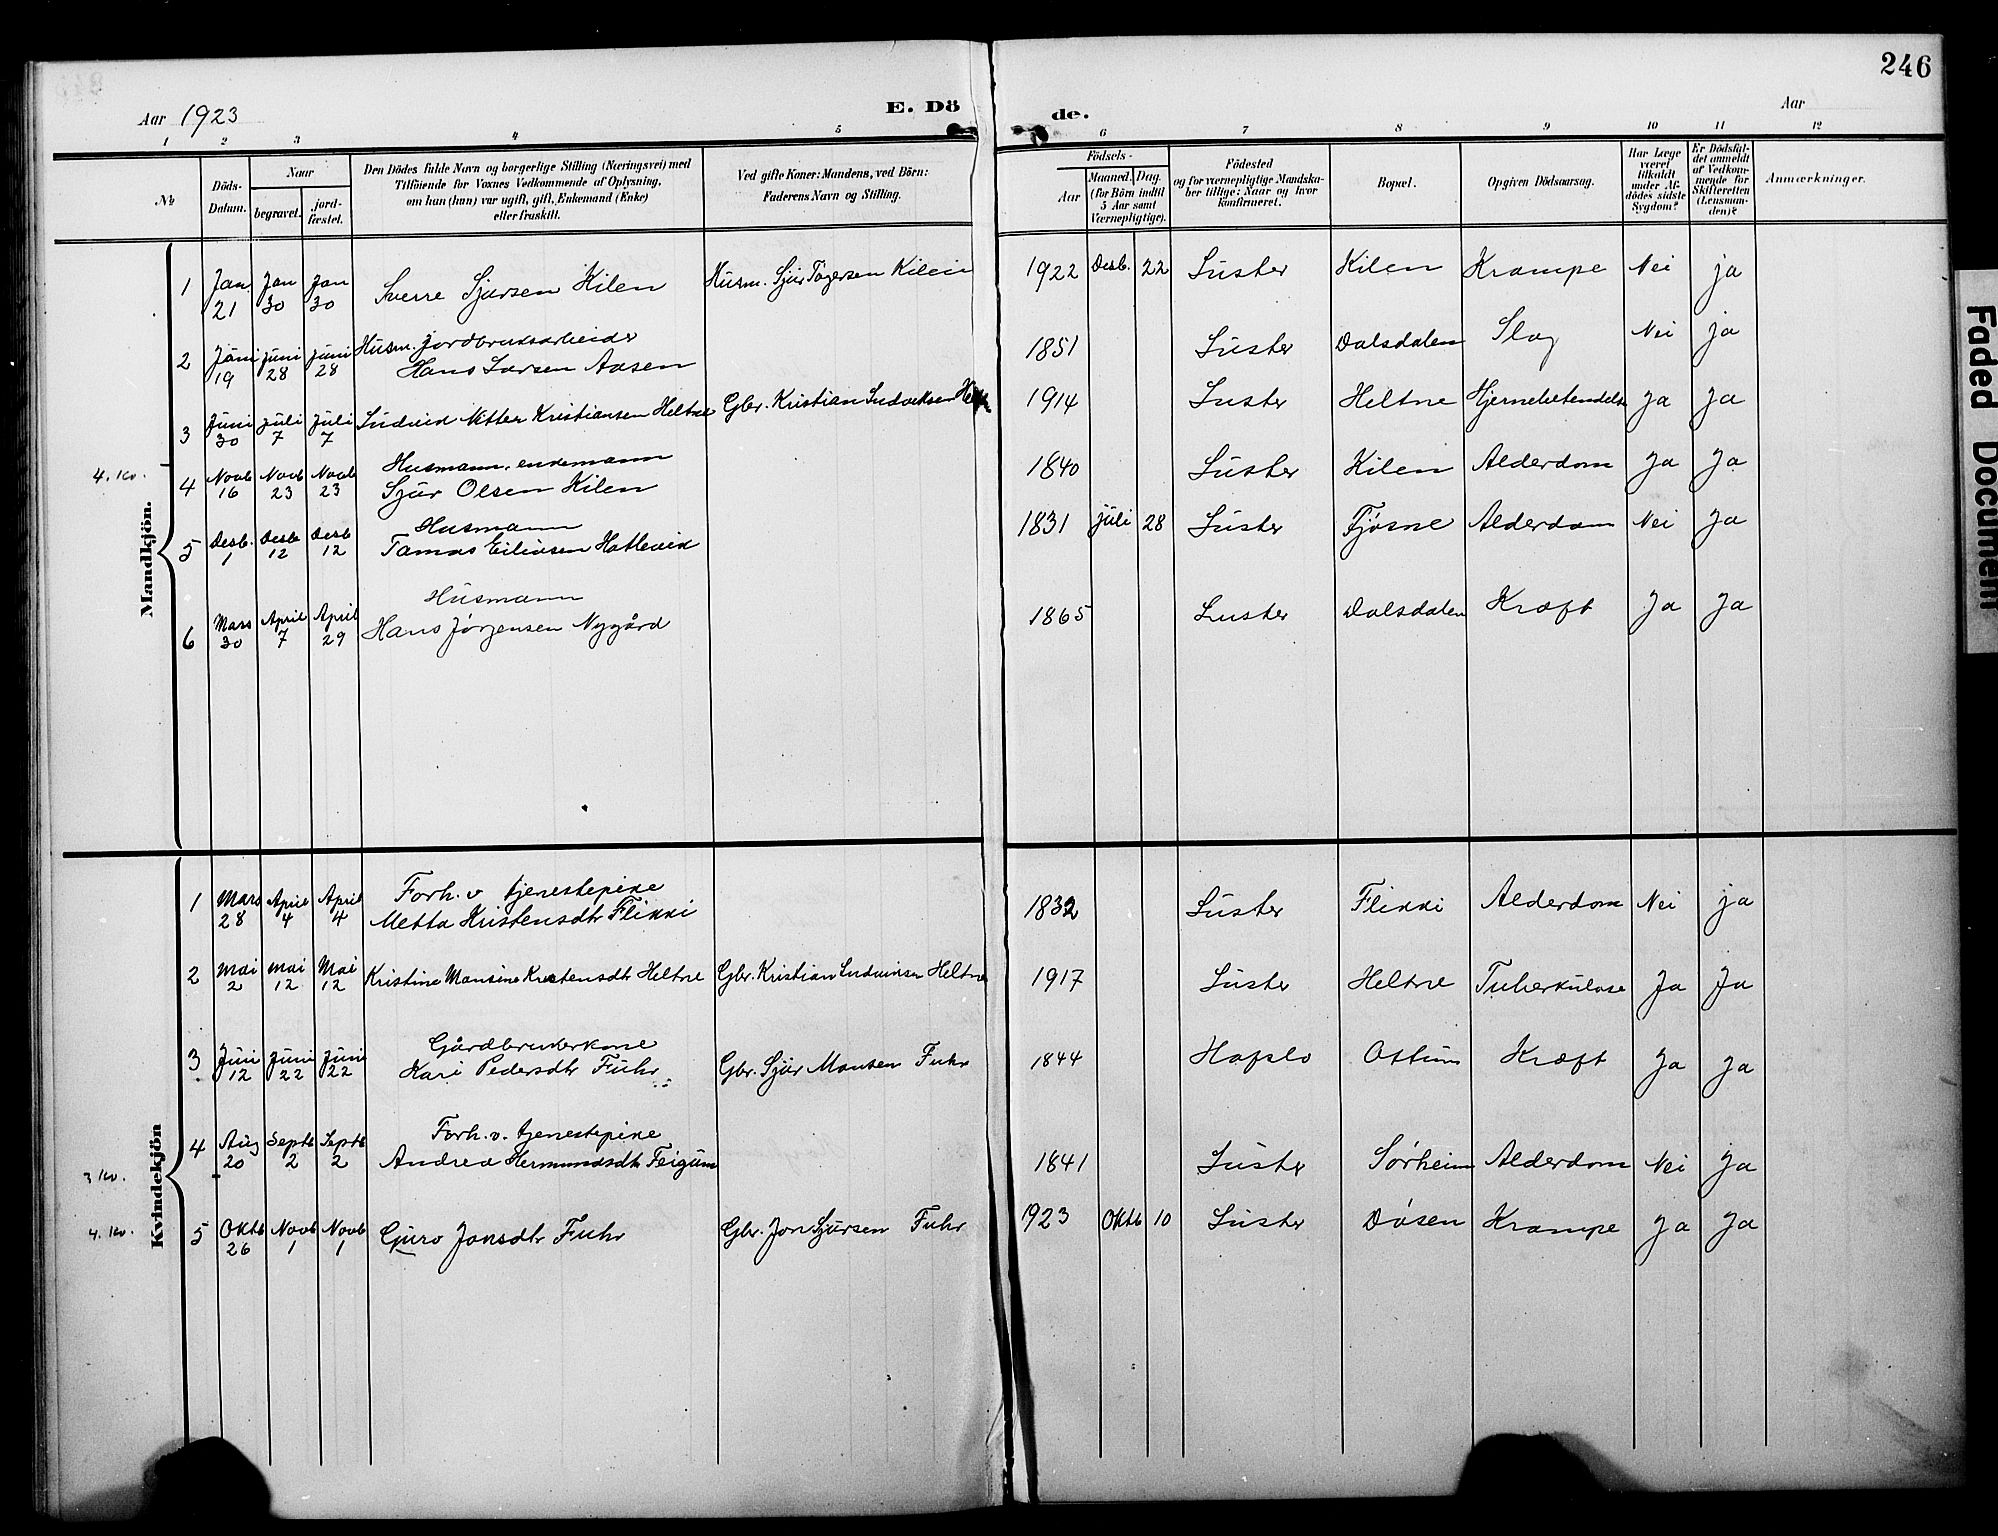 246
Aar 1923 E. Dö de. Aar
1 2 3 4 5 6 7 8 9 10 11 12
№
Döds-Datum.
Naar
begravet.
jord-fæstet.
Den Dödes fulde Navn og borgerlige Stilling (Næringsvei) med
Tilföiende for Voxnes Vedkommende af Oplysning,
om han (hun) var ugift, gift, Enkemand (Enke)
eller fraskilt.
Ved gifte Koner: Mandens, ved Börn:
Faderens Navn og Stilling.
Födsels-
Aar
Maaned. Dag.
(for Börn indtil
5 Aar samt
Værnepligtige).
Födested
og for værnepligtige Mandska-
ber tillige: Naar og hvor
konfirmeret.
Bopæl.
Opgiven Dödsaarsag.
Har Læge
været
tilkaldt
under Af-
dödes sidste
Sygdom?
Er Dödsfal-
det anmeldt
af Vedkom-
mende for
Skifteretten
(Lensman-
den)?
Anmærkninger.
Mandkjön.
1 Jan. 21 Jan 30 Jan 30 Sverre Sjursen Kilen Husm. Sjur Tøgersen Kilen 1922 Desb. 22 Luster Kilen Krampe Nei ja
2 Juni 19 juni 28 juni 28 Husm. jordbruksarbeider
Hans Larsen Aasen 1851 Luster Dalsdalen Slag Nei ja
3 Juni 30 juli 7 Juli 7 Ludvid Nitter Kristiansen Heltne Gbr. Kristian Ludviksen 1914 Luster Heltne Hjernebetendelse Ja Ja
4. Kv.
4 Novb 16 Novb 23 Novb 23 Husmann, enkemann
Sjur Olsen Kilen 1840 Luster Kilen Alderdom Ja Ja
5 Desb. 1 Desb 12 Desb 12 Husmann
Tamas Eilivsen Hatlevik 1831 juli 28 Luster Fjøsne Alderdom Nei Ja
6 Mars 30 April 7 April 29 Husmann
Hans Jørgensen Nygård 1865 Luster Dalsdalen Kræft Ja Ja
Kvindekjön
1 Mars 28 April 4 April 4 Forh. v. tjenestepike
Metta Kristensdtr Flikki 1832 Luster Flikki Alderdom Nei ja
2 Mai 2 Mai 12 Mai 12 Kristine Monsine Kristensdtr Heltne Gbr. Kristian Ludviksen Heltne 1917 Luster Heltne Tuberkulose Ja Ja
3 Juni 12 Juni 22 Juni 22 Gårdbrukerkone
Kari Pedersdtr Fuhr Gbr. Sjur Monsen Fuhr 1844 Hafslo Ottum Kræft Ja Ja
3 Kv.
4 Aug 20 Septb 2 Septb 2 Forh. v. tjenestepike
Andrea Hermundsdtr Feigum 1841 Luster Sørheim Alderdom Nei Ja
4. Kv.
5 Oktb 26 Novb 1 Novb 1 Guro Jonsdtr Fuhr Gbr. Jon Sjursen Fuhr 1923 Oktb 10 Luster Døsen Krampe Ja Ja
Faded Document